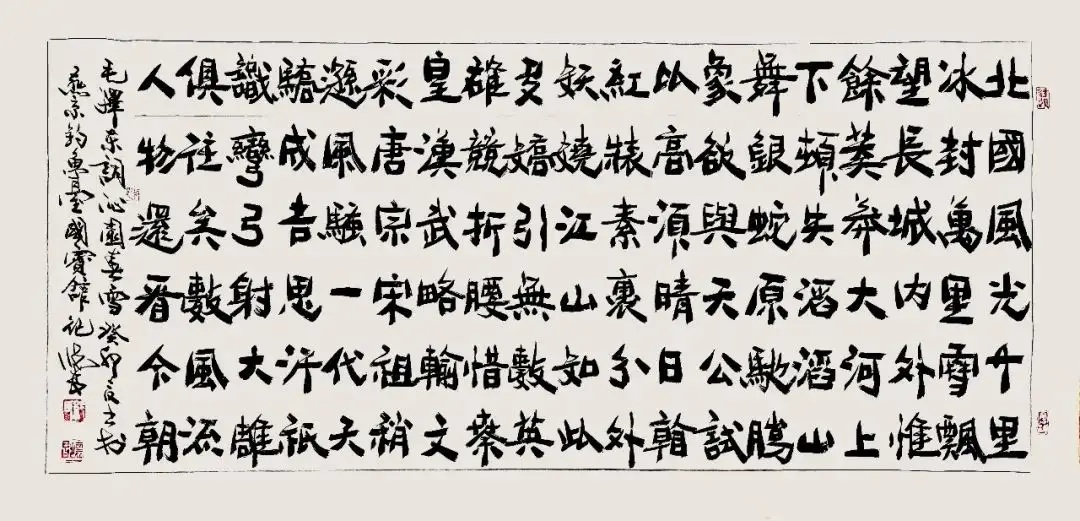 北國風光千里
冰封萬里雪飄
望長城内外惟
餘莽莽大河上
下頓失滔滔山
舞銀蛇原馳臘
象欲與天公試
比高須晴日看
紅裝素裹分外
妖嬈江山如此
多嬌引無數英
雄競折腰惜秦
皇漢武略輸文
彩唐宗宋祖稍
遜風騷一代天
驕成吉思汗祇
識彎弓射大雕
俱往矣數風流
人物還看今朝
毛澤東詞沁園春雪癸卯夏於
燕京釣魚臺國賓館記